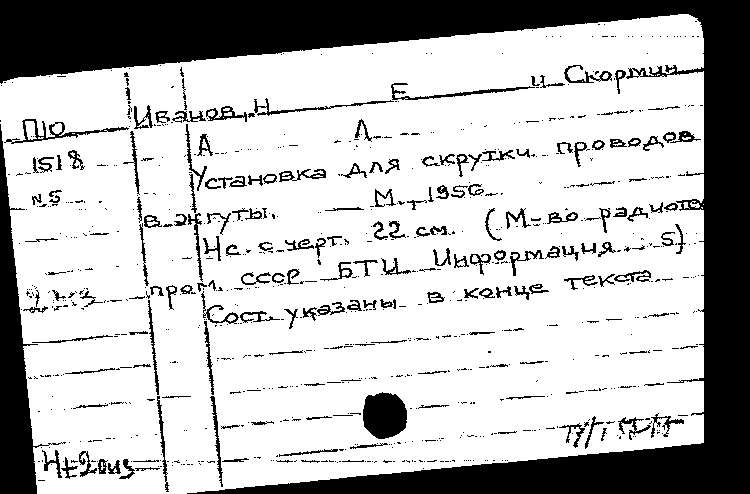 П10 Иванов, Н Е и Скормин
1518 А Л
N5 Установка для скрутки проводов
в жгуты. М., 1956
4с. с черт. 22 см. (М-во радиотех
пром. СССР БТИ Информация 5)
Сост. указаны в конце текста